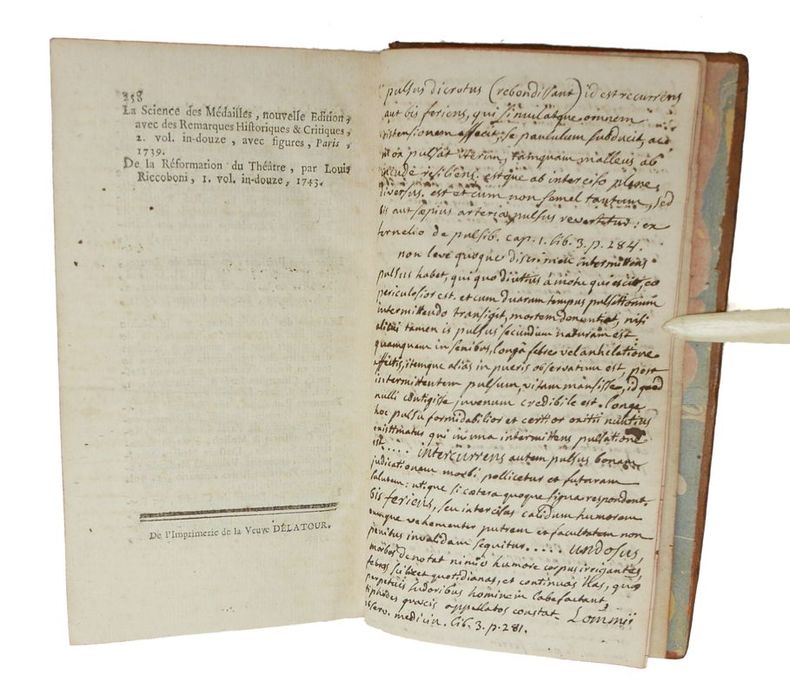 258
La Science des Médailles, nouvelle Edition,
avec des Remarques Historiques & Critiques,
2. vol. in-douze, avec figures, Paris,
1739.
De la Réformation du Théâtre, par Louis
Riccoboni, 1. vol. in-douze, 1743.
De l'Imprimerie de la Veuve DÉLATOUR.
pulsus dicrotus (rebondissant) id est recurrens
aut bis feriens, qui simul atque omnem
distensionem effecit, se paululum subducit, ac
mox pulsat iterum, tamquam malleus ab
incude resiliens. estque ab interciso plane
diversus. est et cum non semel tantum, sed
bis aut sæpius arteriæ pulsus revertitur: ex
de pulsib. cap. 1. lib. 3. p. 284.
non leve quoque discrimen intermittens
pulsus habet, qui quo diutius a motu quiescit, eo
periculosior est. et cum duarum tempus pulsationum
intermittendo transigit, mortem denontiat, nisi
alicui tamen is pulsus secundum naturam est
quamquam in senibus, longa febre vel anhelatione
affectis, itemque alias in pueris observatum est, post
intermittentem pulsum, vitam mansisse, id quod
nulli contigisse juvenum credibile est. longe
hoc pulsu formidabilior et certior exitii nuntius
existimatus qui in una intermittens pulsatione
est.... intercurrens autem pulsus bonam
judicationem morbi pollicetur et futuram
salutem: utique si cætera quoque signa respondent.
bis feriens, seu intercisus calidum humorem
eumque vehementer putrem et facultatem non
penitus invalidam sequitur..... undosus,
morbos denotat nimio humore corpus irrigantes,
febres scilicet quotidianas, et continuas illas, quæ
perpetuis sudoribus hominem labefactant
tiphodes græcis appellatos constat. Lommii
observ. medicin. lib. 3. p. 281.